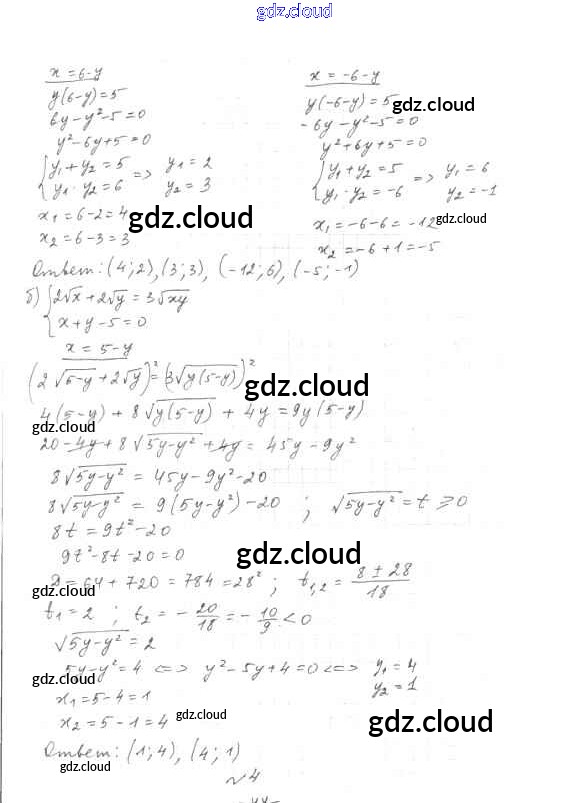 gdz.cloud
x = 6-y
y(6-y)=5
6y-y²-5=0
y²-6y+5=0
{y₁+y₂=5
y₁·y₂=6 => y₁=2
y₂=3
x₁=6-2=4
x₂=6-3=3
gdz.cloud
x = -6-y
y(-6-y)=5
gdz.cloud
-6y-y²-5=0
y²+6y+5=0
{y₁+y₂=5
y₁·y₂=-6 => y₁=6
y₂=-1
x₁=-6-6=-12
gdz.cloud
x₂=-6+1=-5
Ответ: (4;2), (3;3), (-12;6), (-5;-1)
б) {2√x+2√y=3√xy
x+y-5=0
x = 5-y
(2√5-y+2√y)²=(3√y(5-y))²
gdz.cloud
4(5-y)+8√y(5-y)+4y=9y(5-y)
gdz.cloud
20-4y+8√5y-y²+4y=45y-9y²
8√5y-y²=45y-9y²-20
8√5y-y²=9(5y-y²)-20 ; √5y-y²=t⩾0
8t=9t²-20
9t²-8t-20=0
gdz.cloud
D=64+720=784=28² ; t₁,₂=8±28/18
gdz.cloud
t₁=2 ; t₂=-20/18=-10/9<0
√5y-y²=2
5y-y²=4 <=> y²-5y+4=0 <=> y₁=4
y₂=1
gdz.cloud
x₁=5-4=1
x₂=5-1=4
gdz.cloud
gdz.cloud
Ответ: (1;4), (4;1)
gdz.cloud
№4